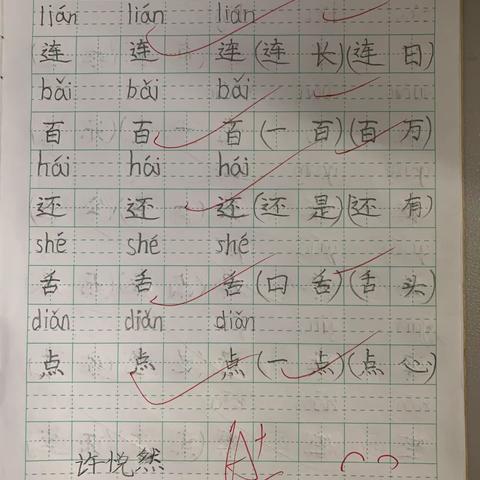 lián lián lián
连 连 连 (连 长) (连 日)
bǎi bǎi bǎi
百 百 百 (一 百) (百 万)
hái hái hái
还 还 还 (还 是) (还 有)
shé shé shé
舌 舌 舌 (口 舌) (舌 头)
diǎn diǎn diǎn
点 点 点 (一 点) (点 心)
许悦然 A+